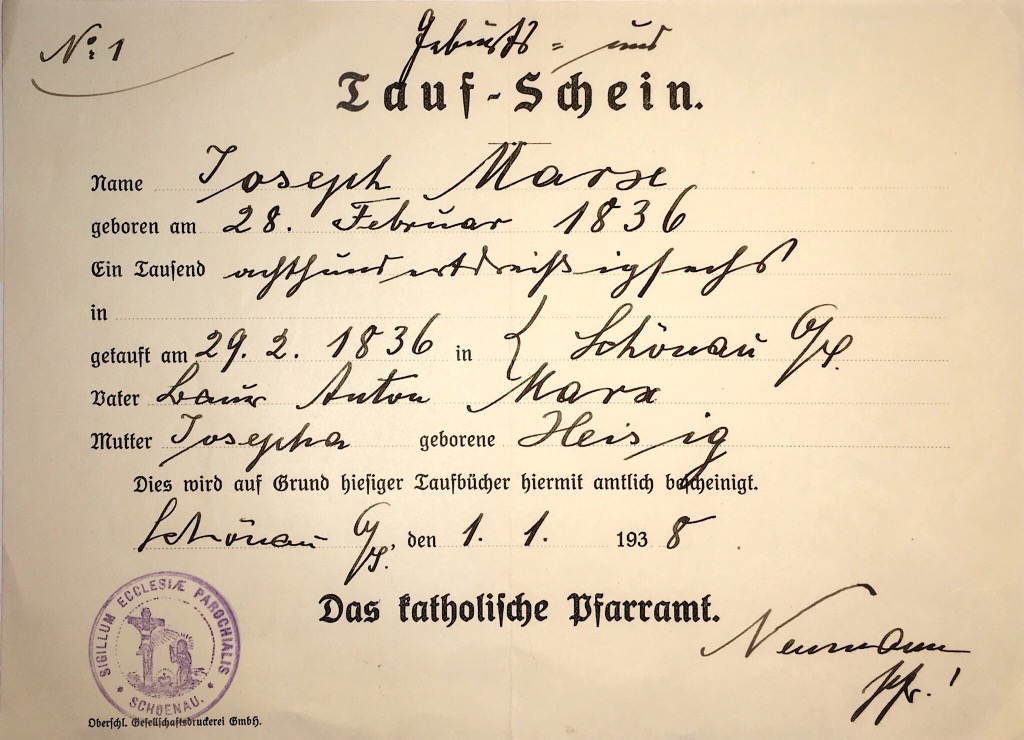 No: 1
Geburts= und
Tauf-Schein.
Name Joseph Marx
geboren am 28. Februar 1836
Ein Tausend achthundertdreißigsechs
in
getauft am 29. 2. 1836 in { Schönau O/S.
Vater Bauer Anton Marx
Mutter Josepha geborene Heisig
Dies wird auf Grund hiesiger Taufbücher hiermit amtlich bescheinigt.
Schönau O/S., den 1. 1. 1938
Das katholische Pfarramt.
Neumann
Pfr.!
SIGILLUM ECCLESIÆ PAROCHIALIS
* SCHOENAU. *
Oberschl. Gesellschaftsdruckerei GmbH.